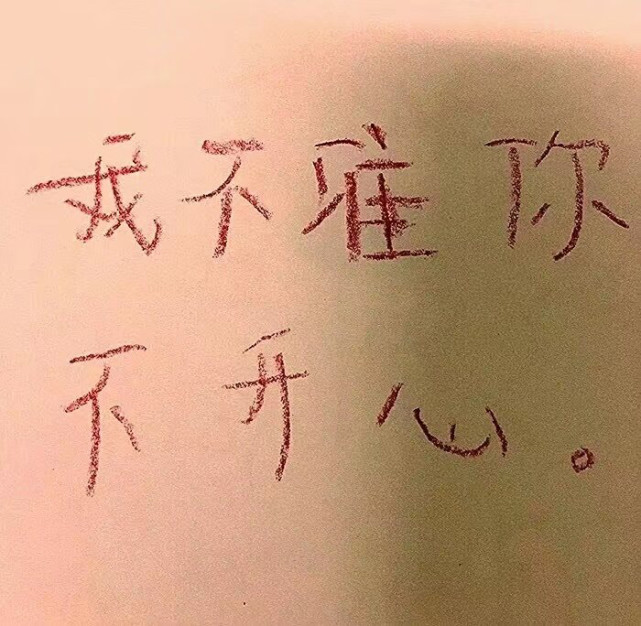 我不准你
不开心。